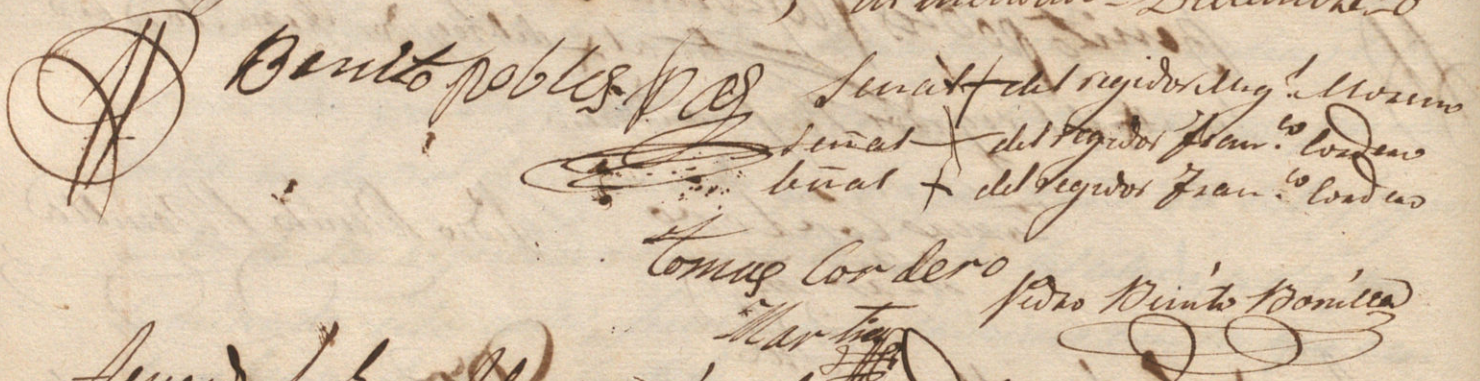 Benito pobles poz Señal + del regidor Mig.l Moreno
señal + del regidor Fran.co Cordero
señal + del regidor Fran.co Cordero
tomas Cordero
Pedro Benito Bonilla
Martin